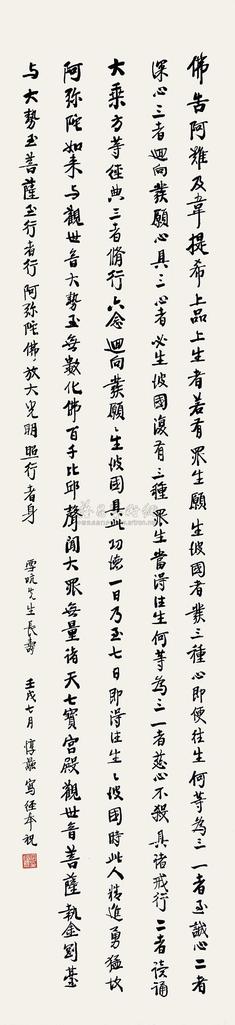 佛告阿难及韋提希上品上生者若有眾生願生彼國者發三種心即便往生何等為三一者至誠心二者
深心三者迴向發願心具三心者必生彼國復有三種眾生當得往生何等為三一者慈心不殺具諸戒行二者讀誦
大乘方等經典三者脩行六念迴向發願〻生彼國具此功德一日乃至七日即得往生〻彼國時此人精進勇猛故
阿弥陀如来与觀世音大勢至無數化佛百千比丘聲聞大眾無量諸天七寶宮殿觀世音菩薩執金剛臺
与大勢至菩薩至行者行阿弥陀佛放大光明照行者身
雪峴先生長壽
壬戌七月 惇敘寫經奉祝